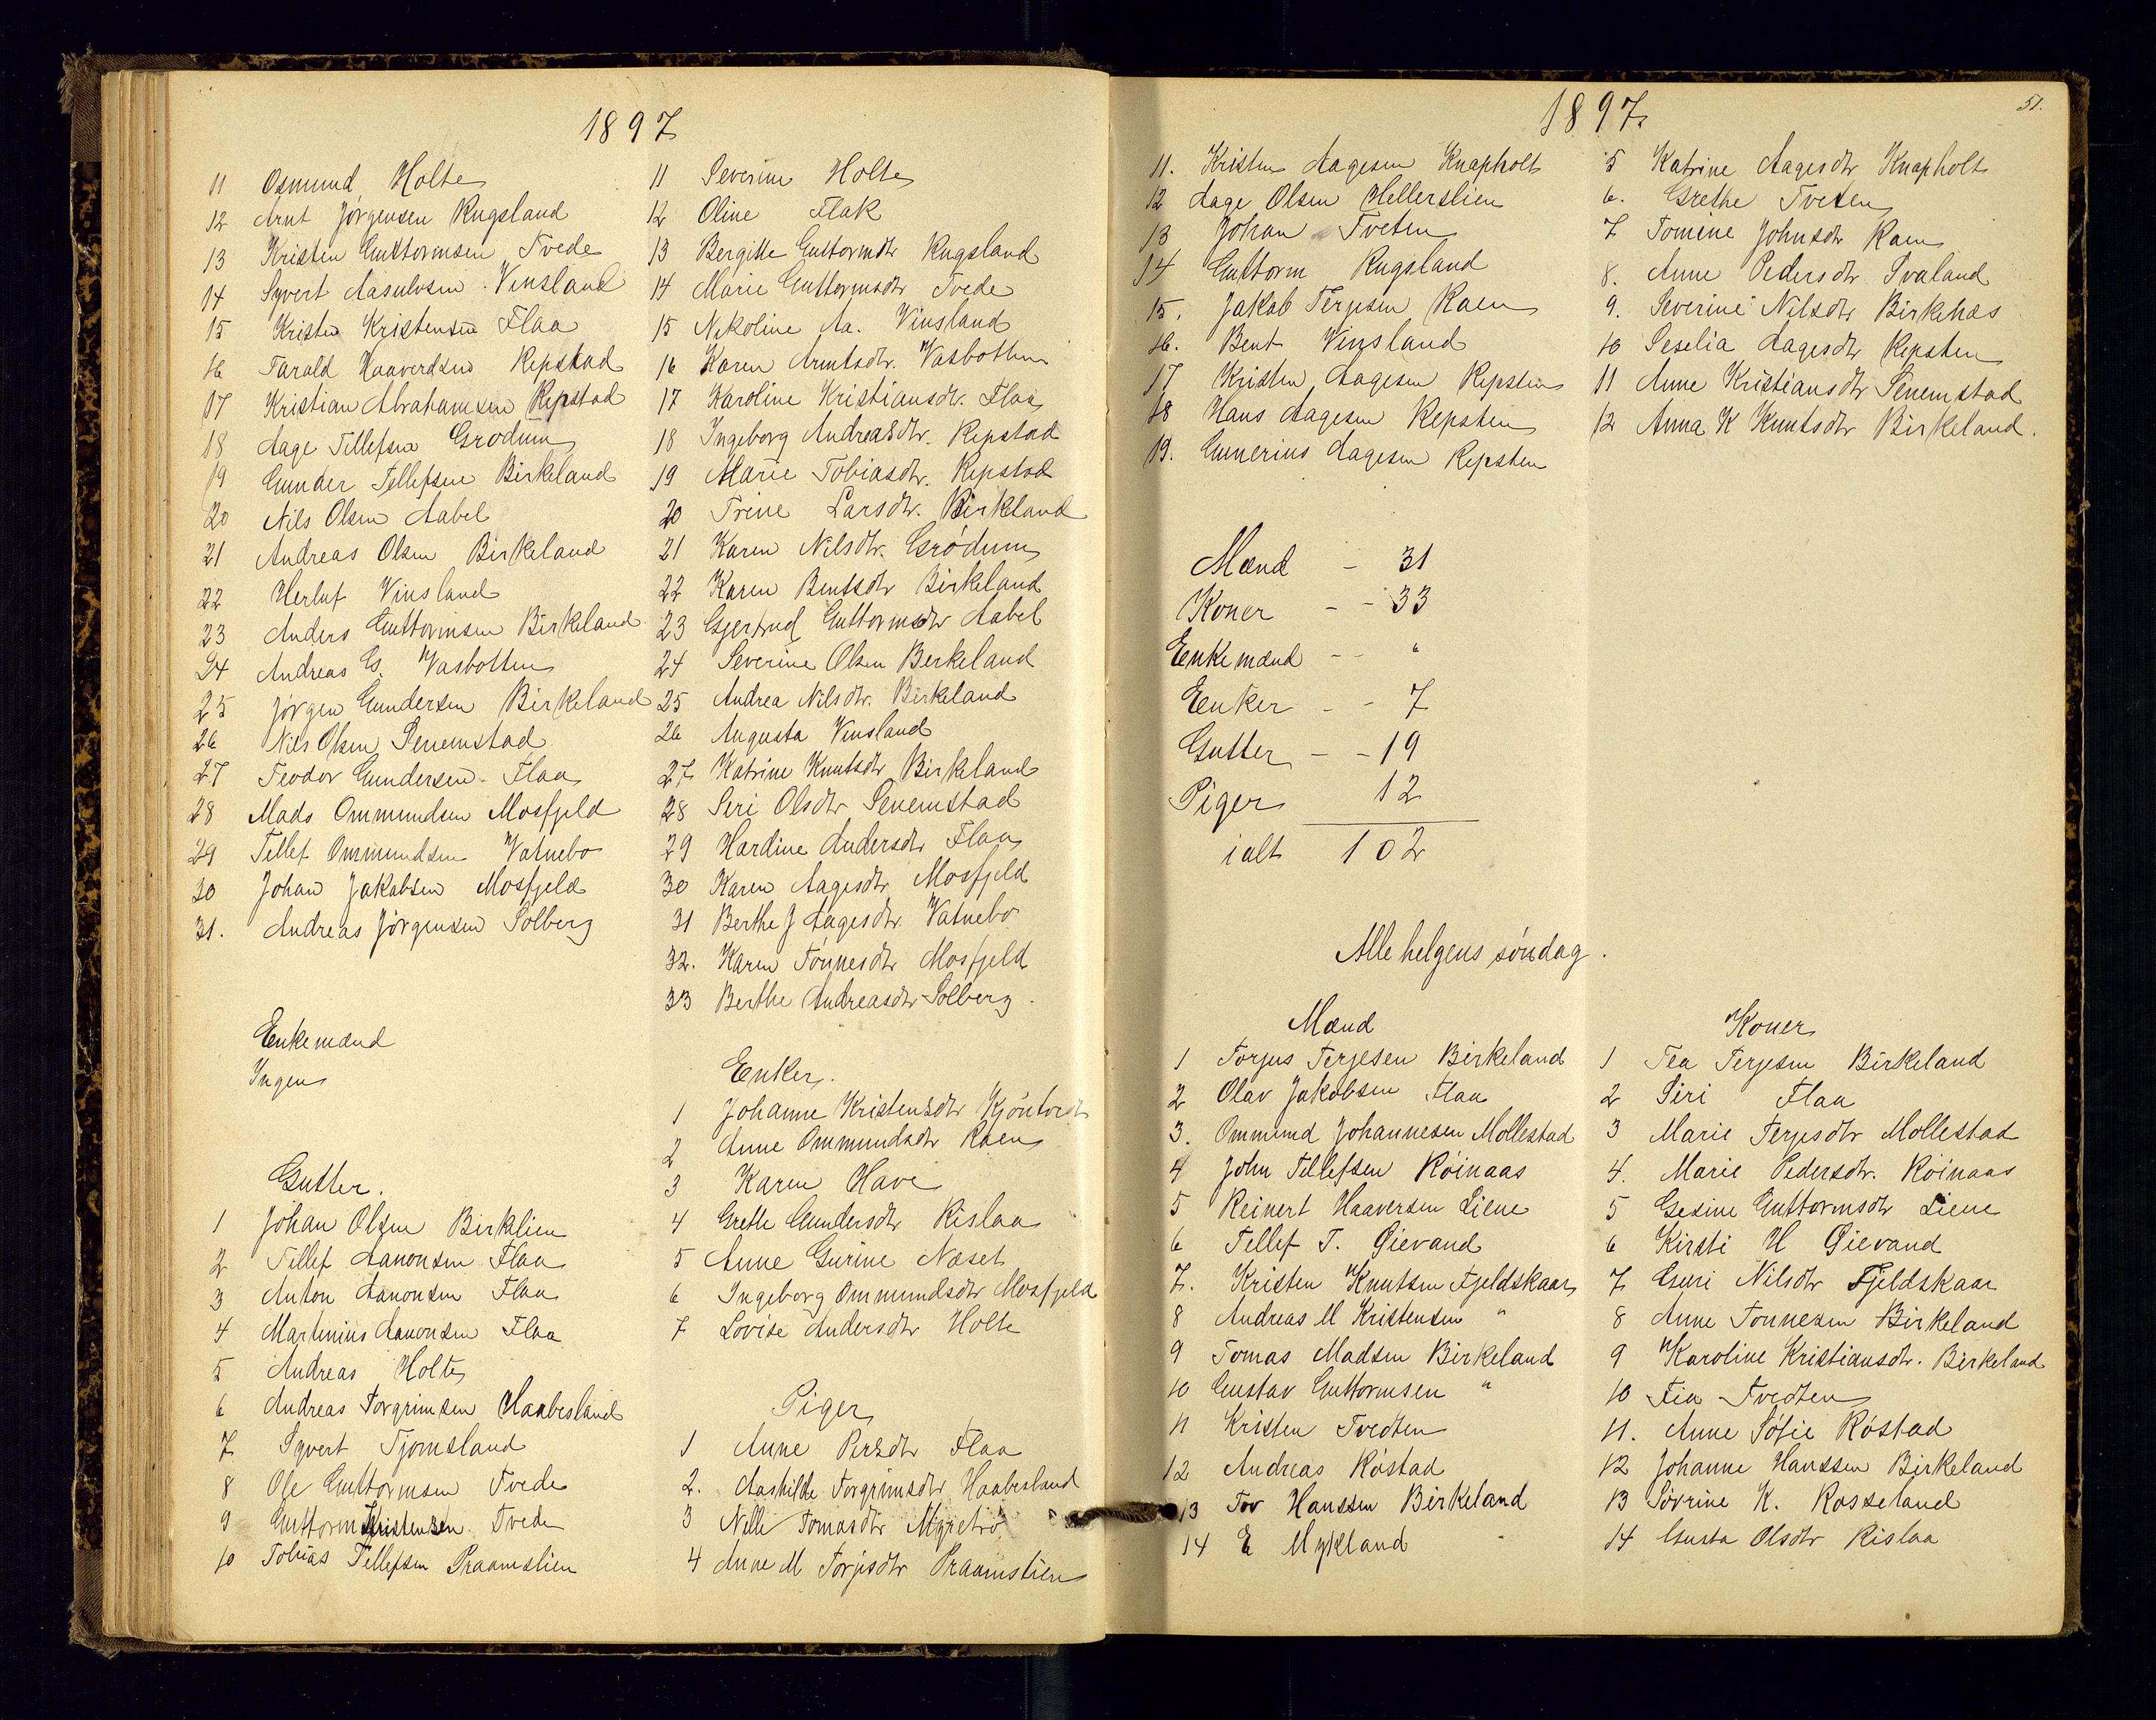 1897
11 Osmund Holte
12 Arnt Jørgensen Rugsland
13 Kristen Guttormsen Tvede
14 Syvert Aasulvsen Vinsland
15 Kristen Kristensen Flaa
16 Tarald Haaverdsen Repstad
17 Kristian Abrahamsen Repstad
18 Aage Tellefsen Grødum
19 Gunder Tellefsen Birkeland
20 Nils Olsen Aabel
21 Andreas Olsen Birkeland
22 Herluf Vinsland
23 Anders Guttormsen Birkeland
24 Andreas G. Vasbotten
25 Jørgen Gundersen Birkeland
26 Nils Olsen Senemstad
27 Teodor Gundersen Flaa
28 Mads Ommundsen Mosfjeld
29 Tellef Ommundsen Vatnebo
30 Johan Jakobsen Mosfjeld
31. Andreas Jørgensen Solberg
Enkemænd
Ingen
Gutter.
1 Johan Olsen Birklien
2 Tellef Aanonsen Flaa
3 Anton Aanonsen Flaa
4 Martinius Aanonsen Flaa
5 Andreas Holte
6 Andreas Torgrimsen Haabesland
7 Syvert Tjomsland
8 Ole Guttormsen Tvede
9 Guttorm Kristensen Tvede
10 Tobias Tellefsen Praamslien
11 Severine Holte
12 Oline Flak
13 Bergitte Guttormdtr Rugsland
14 Marie Guttormsdtr Tvede
15 Nikoline Aa. Vinsland
16 Karen Arntsdtr. Vasbotten
17 Karoline Kristiansdtr. Flaa
18 Ingeborg Andreasdtr. Repstad
19 Marie Tobiasdtr. Repstad
20 Trine Larsdtr. Birkeland
21 Karen Nilsdtr. Grødum
22 Karen Bentsdtr Birkeland
23 Gjertrud Guttormsdtr Aabel
24 Severine Olsen Berkeland
25 Andrea Nilsdtr. Birkeland
26 Augusta Vinsland
27 Katrine Knutsdtr Birkeland
28 Seri Olsdtr Senemstad
29 Hardine Andersdtr Flaa
30 Karen Aagesdtr Mosfjeld
31 Berthe J Aagesdtr. Vatnebo
32. Karen Tønnesdtr Mosfjeld
33 Berthe Andreasdtr Solberg.
Enker.
1 Johanne Kristensdtr
2 Anne Ommundsdtr Raen
3 Karen Have
4 Grethe Gundersdtr Rislaa
5 Anne Gurine Næset
6 Ingeborg Ommundsdtr Mosfjeld
7 Lovise Andersdtr Holte
Piger
1 Anne Persdtr Flaa
2. Aashilde Torgrimsdtr Haabesland
3 Nelle Tomasdtr
4 Anne M Torjisdtr Praamslien
51.
1897.
11. Kristen Aagesen Knapholt
12 Aage Olsen Hellerslien
13 Johan Tveten
14 Guttorm Rugsland
15. Jakob Terjesen Raen
16. Bent Vinsland
17 Kristen Aagesen Repsten
18 Hans Aagesen Repsten
19. Gunerius Aagesen Repsten
5 Katrine Aagesdtr Knapholt
6. Grethe Tveten
7 Tomine Johnsdtr Raen
8. Anne Pedersdtr Svaland
9. Severine Nilsdtr Birkenæs
10 Seselia Aagesdtr Repsten
11 Anne Kristiansdtr Senemstad
12 Anna K Knutsdtr Birkeland.
Mænd - 31
Koner - - 33
Enkemænd - - "
Eenker - - 7
Gutter - - 19
Piger 12
ialt 102
Allehelgens søndag.
Mænd
1 Torjus Terjesen Birkeland
2 Olav Jakobsen Flaa
3. Ommund Johannesen Mollestad
4 John Tellefsen Røinaas
5 Reinert Haaversen Liene
6 Tellef T. Gievand
7. Kristen Knutsen Fjeldskaar
8 Andreas M Kristensen "
9 Tomas Madsen Birkeland
10 Gustav Guttormsen "
11 Kristen Tvedten
12 Andreas Røstad
13 Tov Hanssen Birkeland
14 E Mykland
Koner
1 Tea Terjesen Birkeland
2 Siri Flaa
3 Marie Terjesdtr Mollestad
4. Marie Pedersdtr. Røinaas
5 Gesine Guttormsdtr Liene
6 Kirsti H Gievand
7 Guri Nilsdtr Fjeldskaar
8 Anne Tønnesen Birkeland
9 Karoline Kristiansdtr. Birkeland
10 Tia Tvedten
11. Anne Sofie Røstad
12 Johanne Hanssen Birkeland
13 Søvrine K. Rosseland
14 Gusta Olsdtr Rislaa